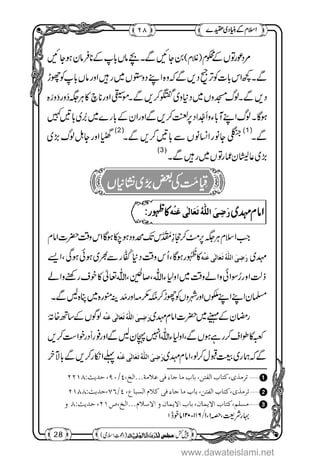 اسلام کے بنیادی عقیدے
٢٨
مرد عورتوں کے محکوم (غلام) بن جائیں گے۔ بچے ماں باپ کے نافرمان ہو جائیں
گے۔ خاص بات کو ترجیح دیں گے کہ وہ اپنے دوستوں میں رہیں اور ماں باپ کو چھوڑ
دیں گے۔ لوگ مسجدوں میں دنیاوی گفتگو کریں گے۔ موسیقی اور ناچ گانا ہر جگہ دور دورہ
ہوگا۔ لوگ اپنے آباء و اجداد پر لعنت کریں گے اور ان کے بارے میں بُری باتیں کہیں
گے۔(1) جنگلی جانور انسانوں سے باتیں کریں گے۔(2) گھٹیا اور جاہل لوگ بڑی
بڑی عالیشان عمارتوں میں رہیں گے۔(3)
قیامت کی بعض بڑی نشانیاں
امام مہدی رَضِیَ اللّٰہُ تَعَالٰی عَنْہ کا ظہور:
جب اسلام ہر جگہ ہر سمٹ کر حجازِ مقدّس تک محدود ہو چکا ہوگا اس وقت حضرت امام
مہدی رَضِیَ اللّٰہُ تَعَالٰی عَنْہ کا ظہور ہوگا، اُس وقت دنیا کفّار سے بھری ہوئی ہوگی، ایسے
ذلّت اور رسوائی والے وقت میں اولیا، صالحین، اللہ تعالیٰ کا خوف رکھنے والے
مسلمان اپنے اپنے ملکوں اور شہروں کو چھوڑ کر مکّہ مکرّمہ اور مدینہ منورہ میں پناہ لیں گے۔
رمضان کے مہینے میں حضرت امام مہدی رَضِیَ اللّٰہُ تَعَالٰی عَنْہ لوگوں کے ساتھ خانۂ
کعبہ کا طواف کر رہے ہوں گے، اولیاء اللہ انہیں پہچان لیں گے اور فوراً درخواست کریں
گے کہ ہماری بیعت قبول کرلو، امام مہدی رَضِیَ اللّٰہُ تَعَالٰی عَنْہ پہلے انکار کریں گے بالآخر
1 ترمذی، کتاب الفتن، باب ما جاء فی علامة...الخ، ٩٠/٤، حدیث: ٢٢١٨
2 ترمذی، کتاب الفتن، باب ما جاء فی کلام السباع، ٧٦/٤، حدیث: ٢١٨٨
3 مسلم، کتاب الایمان، باب الایمان و الاسلام...الخ، ص٢١، حدیث: ٨ و
بہارِ شریعت، حصہ ١، ١/ ١١٦-١٢٠ ماخوذاً
28
پیش کش: مجلس (دعوتِ اسلامی)
www.dawateislami.net